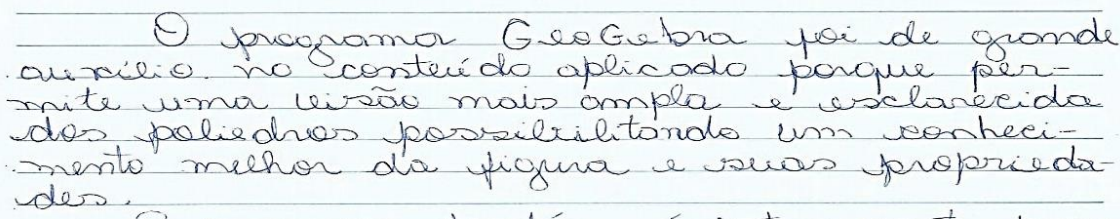 O programa GeoGebra foi de grande
auxílio no conteúdo aplicado porque per-
mite uma visão mais ampla e esclarecida
dos poliedros possibilitando um conheci-
mento melhor da figura e suas proprieda-
des.